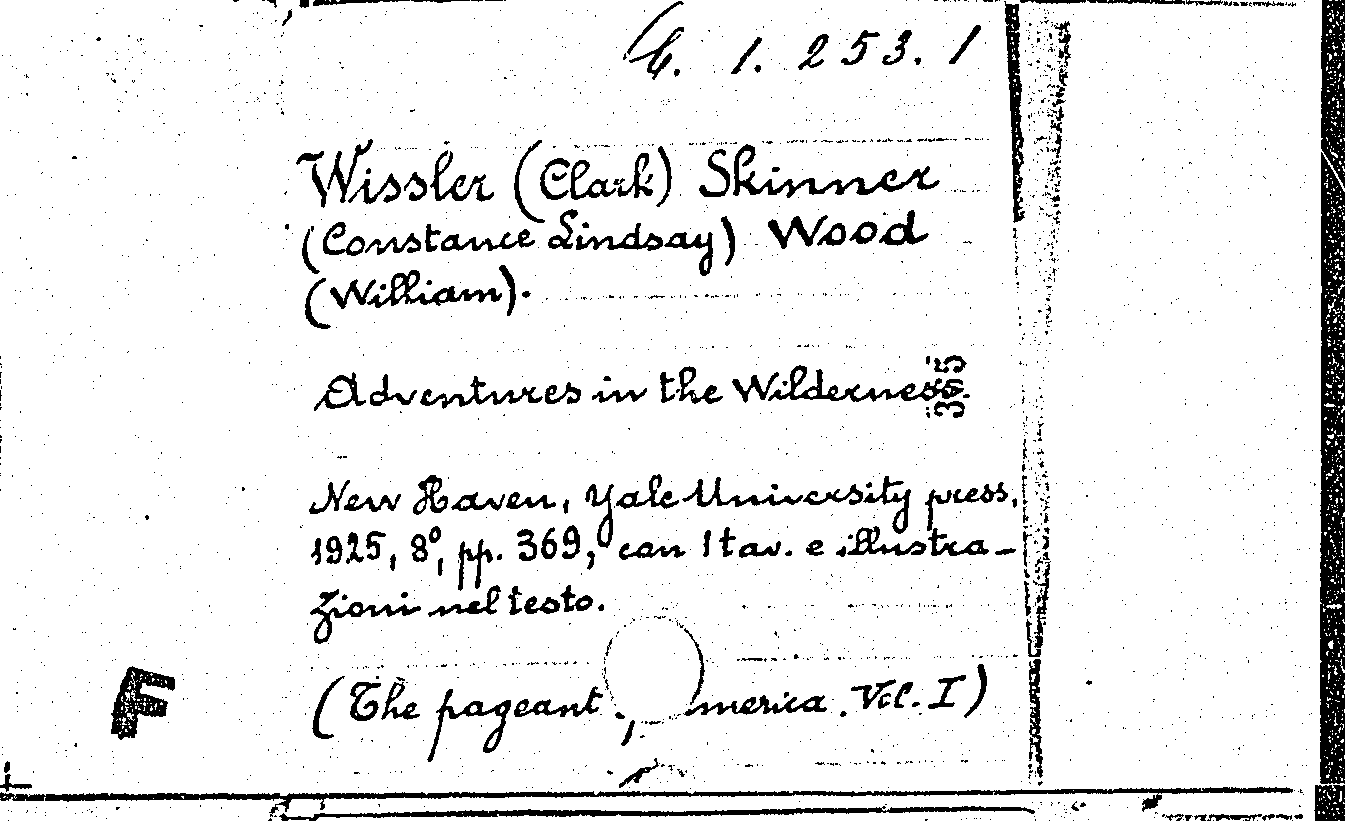 G. 1. 253. 1
Wissler (Clark) Skinner
(Constance Lindsay) Wood
(William).
Adventures in the Wilderness.
New Haven, Yale University press,
1925, 8°, pp. 369, con 1 tav. e illustra-
zioni nel testo.
(The pageant America. Vol. I)
F